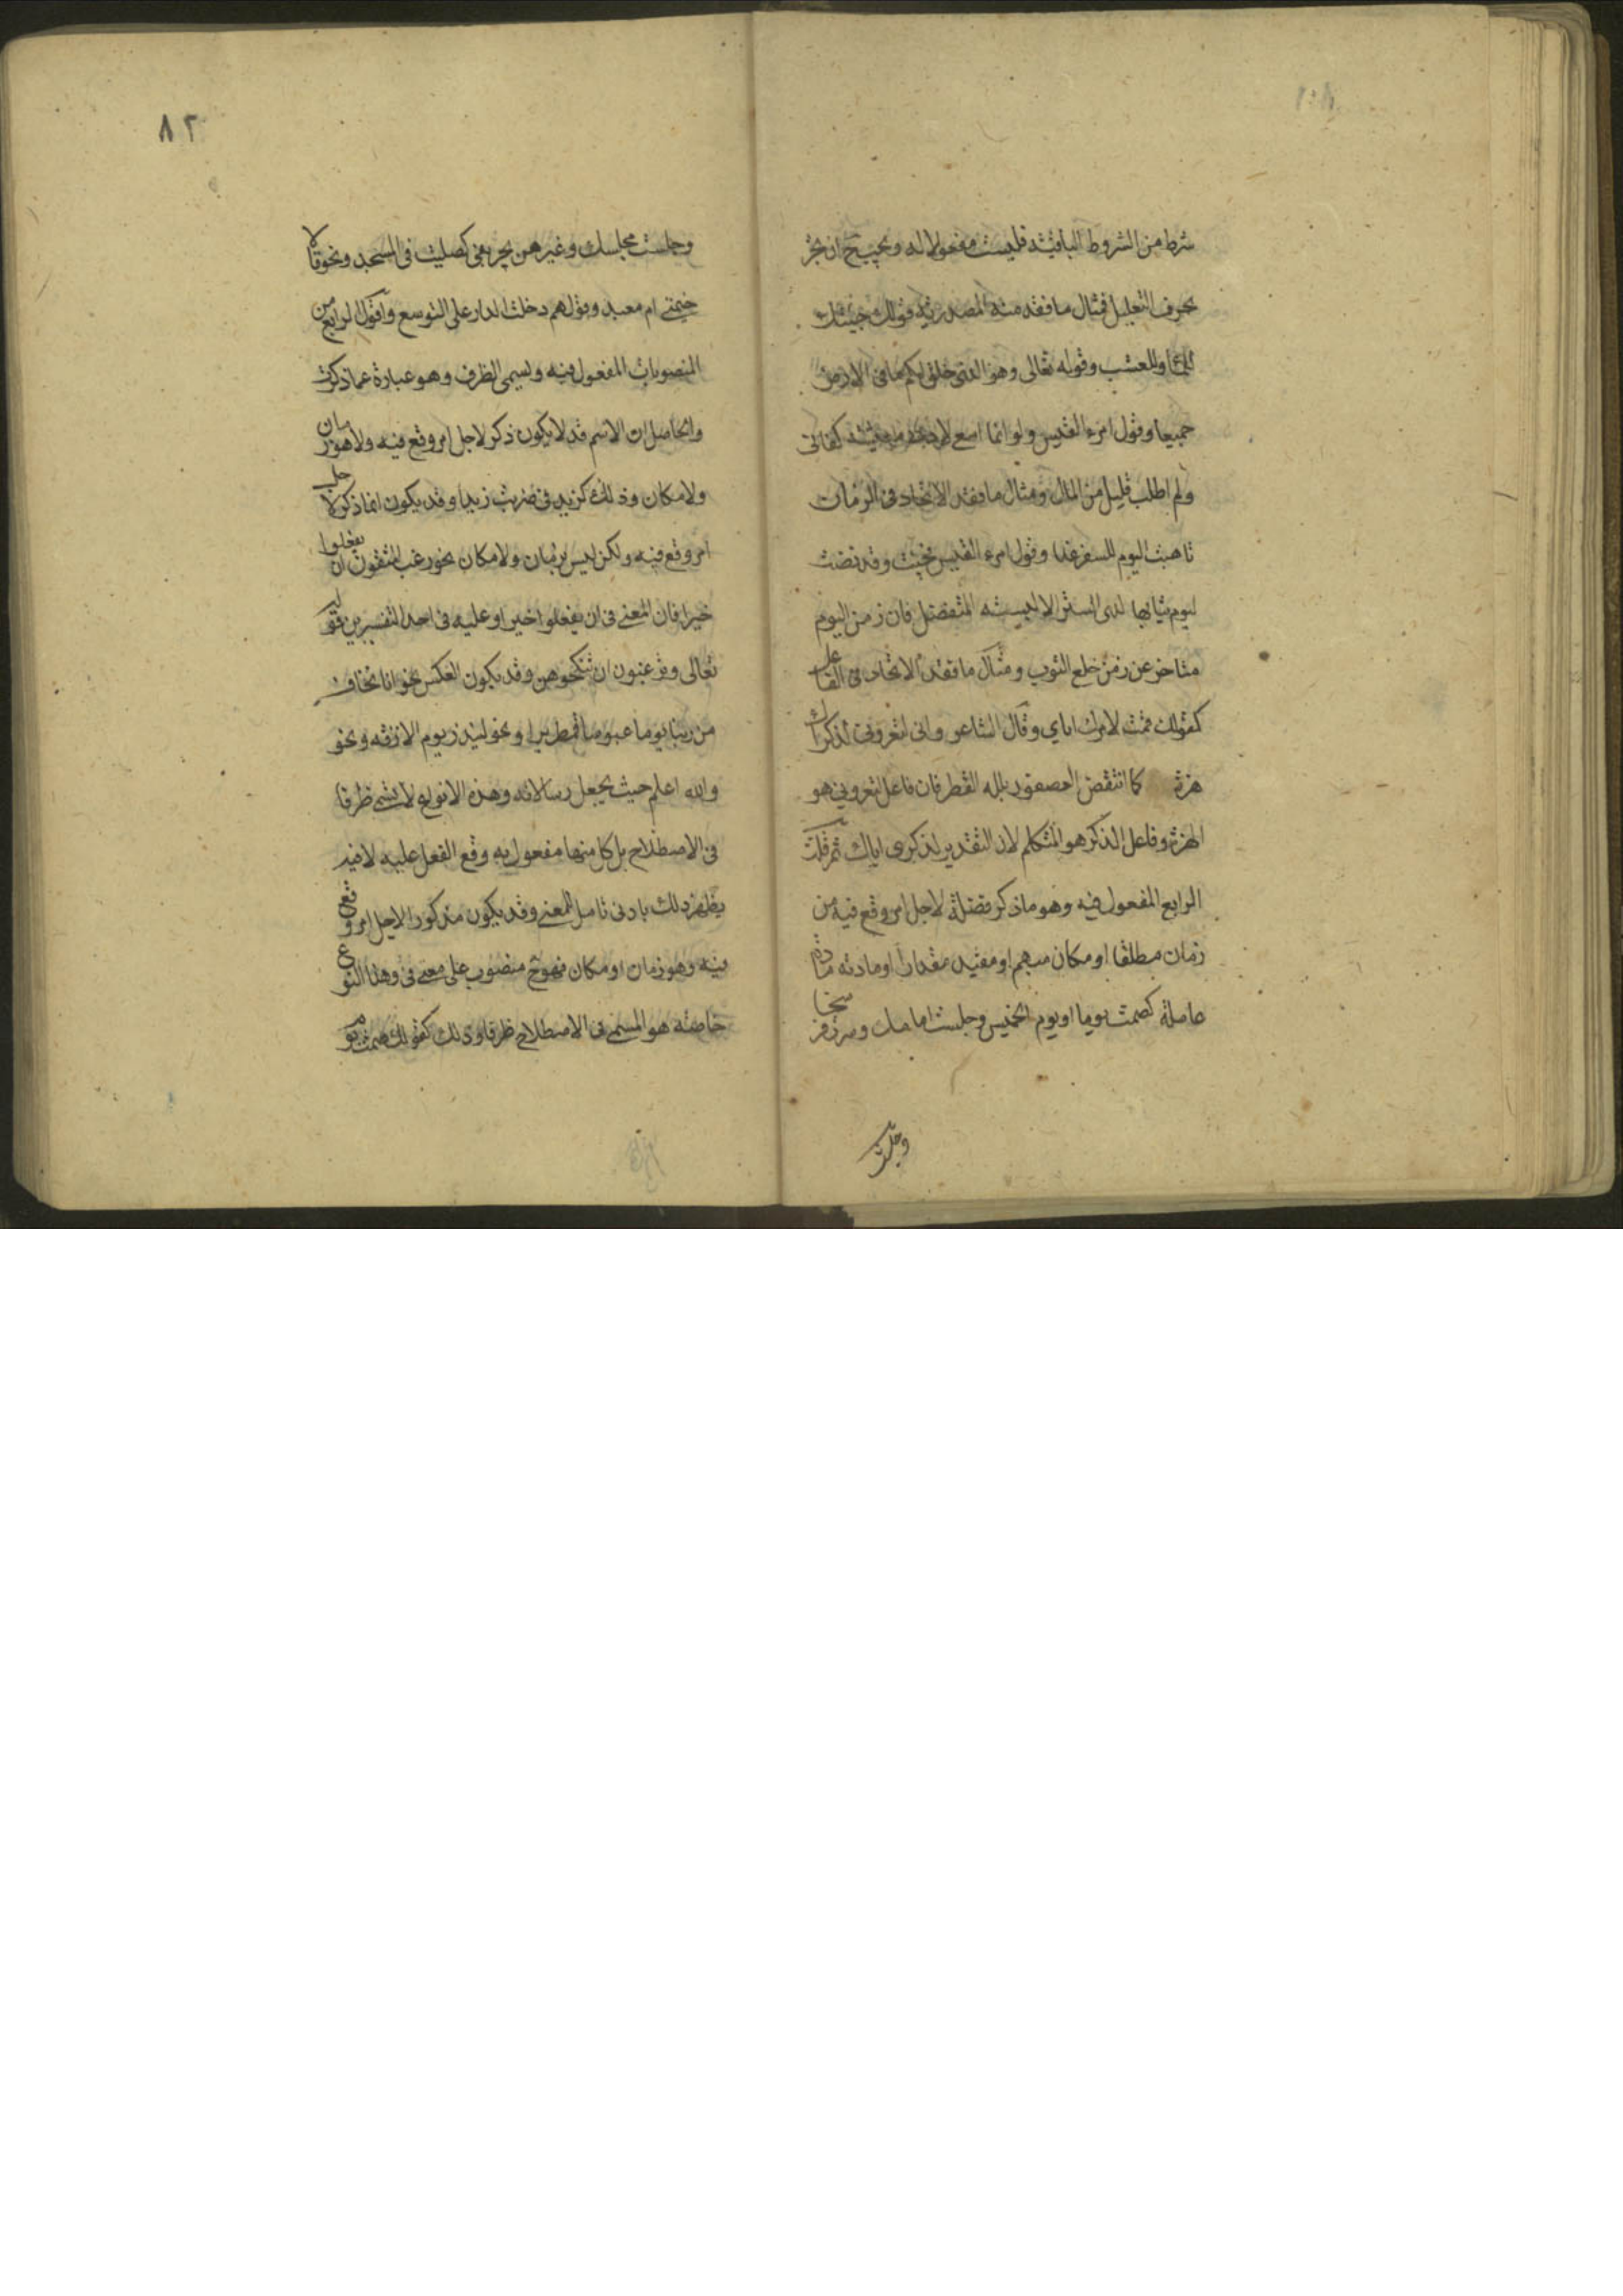 شرط من الشروط الباقية فليست مفعولا له ويجب ح ان يجر
بحرف التعليل فمثال ما فقد منه المصدرية قولك جئتك
للماء وللعشب وقوله تعالى وهو الذى خلق لكم ما فى الارض
جميعا وقول امرء القيس ولو انما اسعى لادنى معيشة كفانى
ولم اطلب قليل من المال ومثال ما فقد الاتحاد فى الزمان
تاهبت اليوم للسفر غدا وقول امرء القيس فجئت وقد نضت
ليوم ثيابها لدى الستر الا لبسته المتفضل فان زمن اليوم
متاخر عن زمن خلع الثوب ومثال ما فقد الاتحاد فى الفاعل
كقولك قمت لامرك اياى وقال الشاعر وانى لتعرونى لذكراك
هزة كما انتفض العصفور بلله القطر فان فاعل لتعرونى هو
الهزة وفاعل الذكر هو المتكلم لان التقدير لذكرى اياك ثم قلت
الرابع المفعول فيه وهو ما ذكر فضلة لاجل امر وقع فيه من
زمان مطلقا او مكان مبهم او مفيد مقدارا او مادته مادة
عاملة كصمت يوما او يوم الخميس وجلست امامك وسرت فرسخا
وجلست
٨٢
وجلست مجلسك وغيرهن يجر بفى كصليت فى المسجد ونحو قالا
خيمتى ام معبد وقولهم دخلت الدار على التوسع واقول الرابع من
المنصوبات المفعول فيه ويسمى الظرف وهو عبارة عما ذكرت
والحاصل ان الاسم قد لا يكون ذكر لاجل امر وقع فيه ولا هو زمان
ولا مكان وذلك كزيد فى ضربت زيدا وقد يكون انما ذكر لاجل
امر وقع فيه ولكن ليس بزمان ولا مكان نحو رغب المتقون ان يفعلوا
خيرا فان المعنى فى ان يفعلوا خيرا وعليه فى احد التفسيرين قوله
تعالى وترغبون ان تنكحوهن وقد يكون العكس نحو انا نخاف
من ربنا يوما عبوسا قمطريرا ونحو لينذر يوم الازفة ونحو
والله اعلم حيث يجعل رسالاته وهذه الانواع لا تسمى ظرفا
فى الاصطلاح بل كل منها مفعول به وقع الفعل عليه لا فيه
يظهر ذلك بادنى تامل للمعنى وقد يكون مذكورا لاجل امر وقع
فيه وهو زمان او مكان فهو ح منصوب على معنى فى وهذا النوع
خاصة هو المسمى فى الاصطلاح ظرفا وذلك كقولك صمت يوم